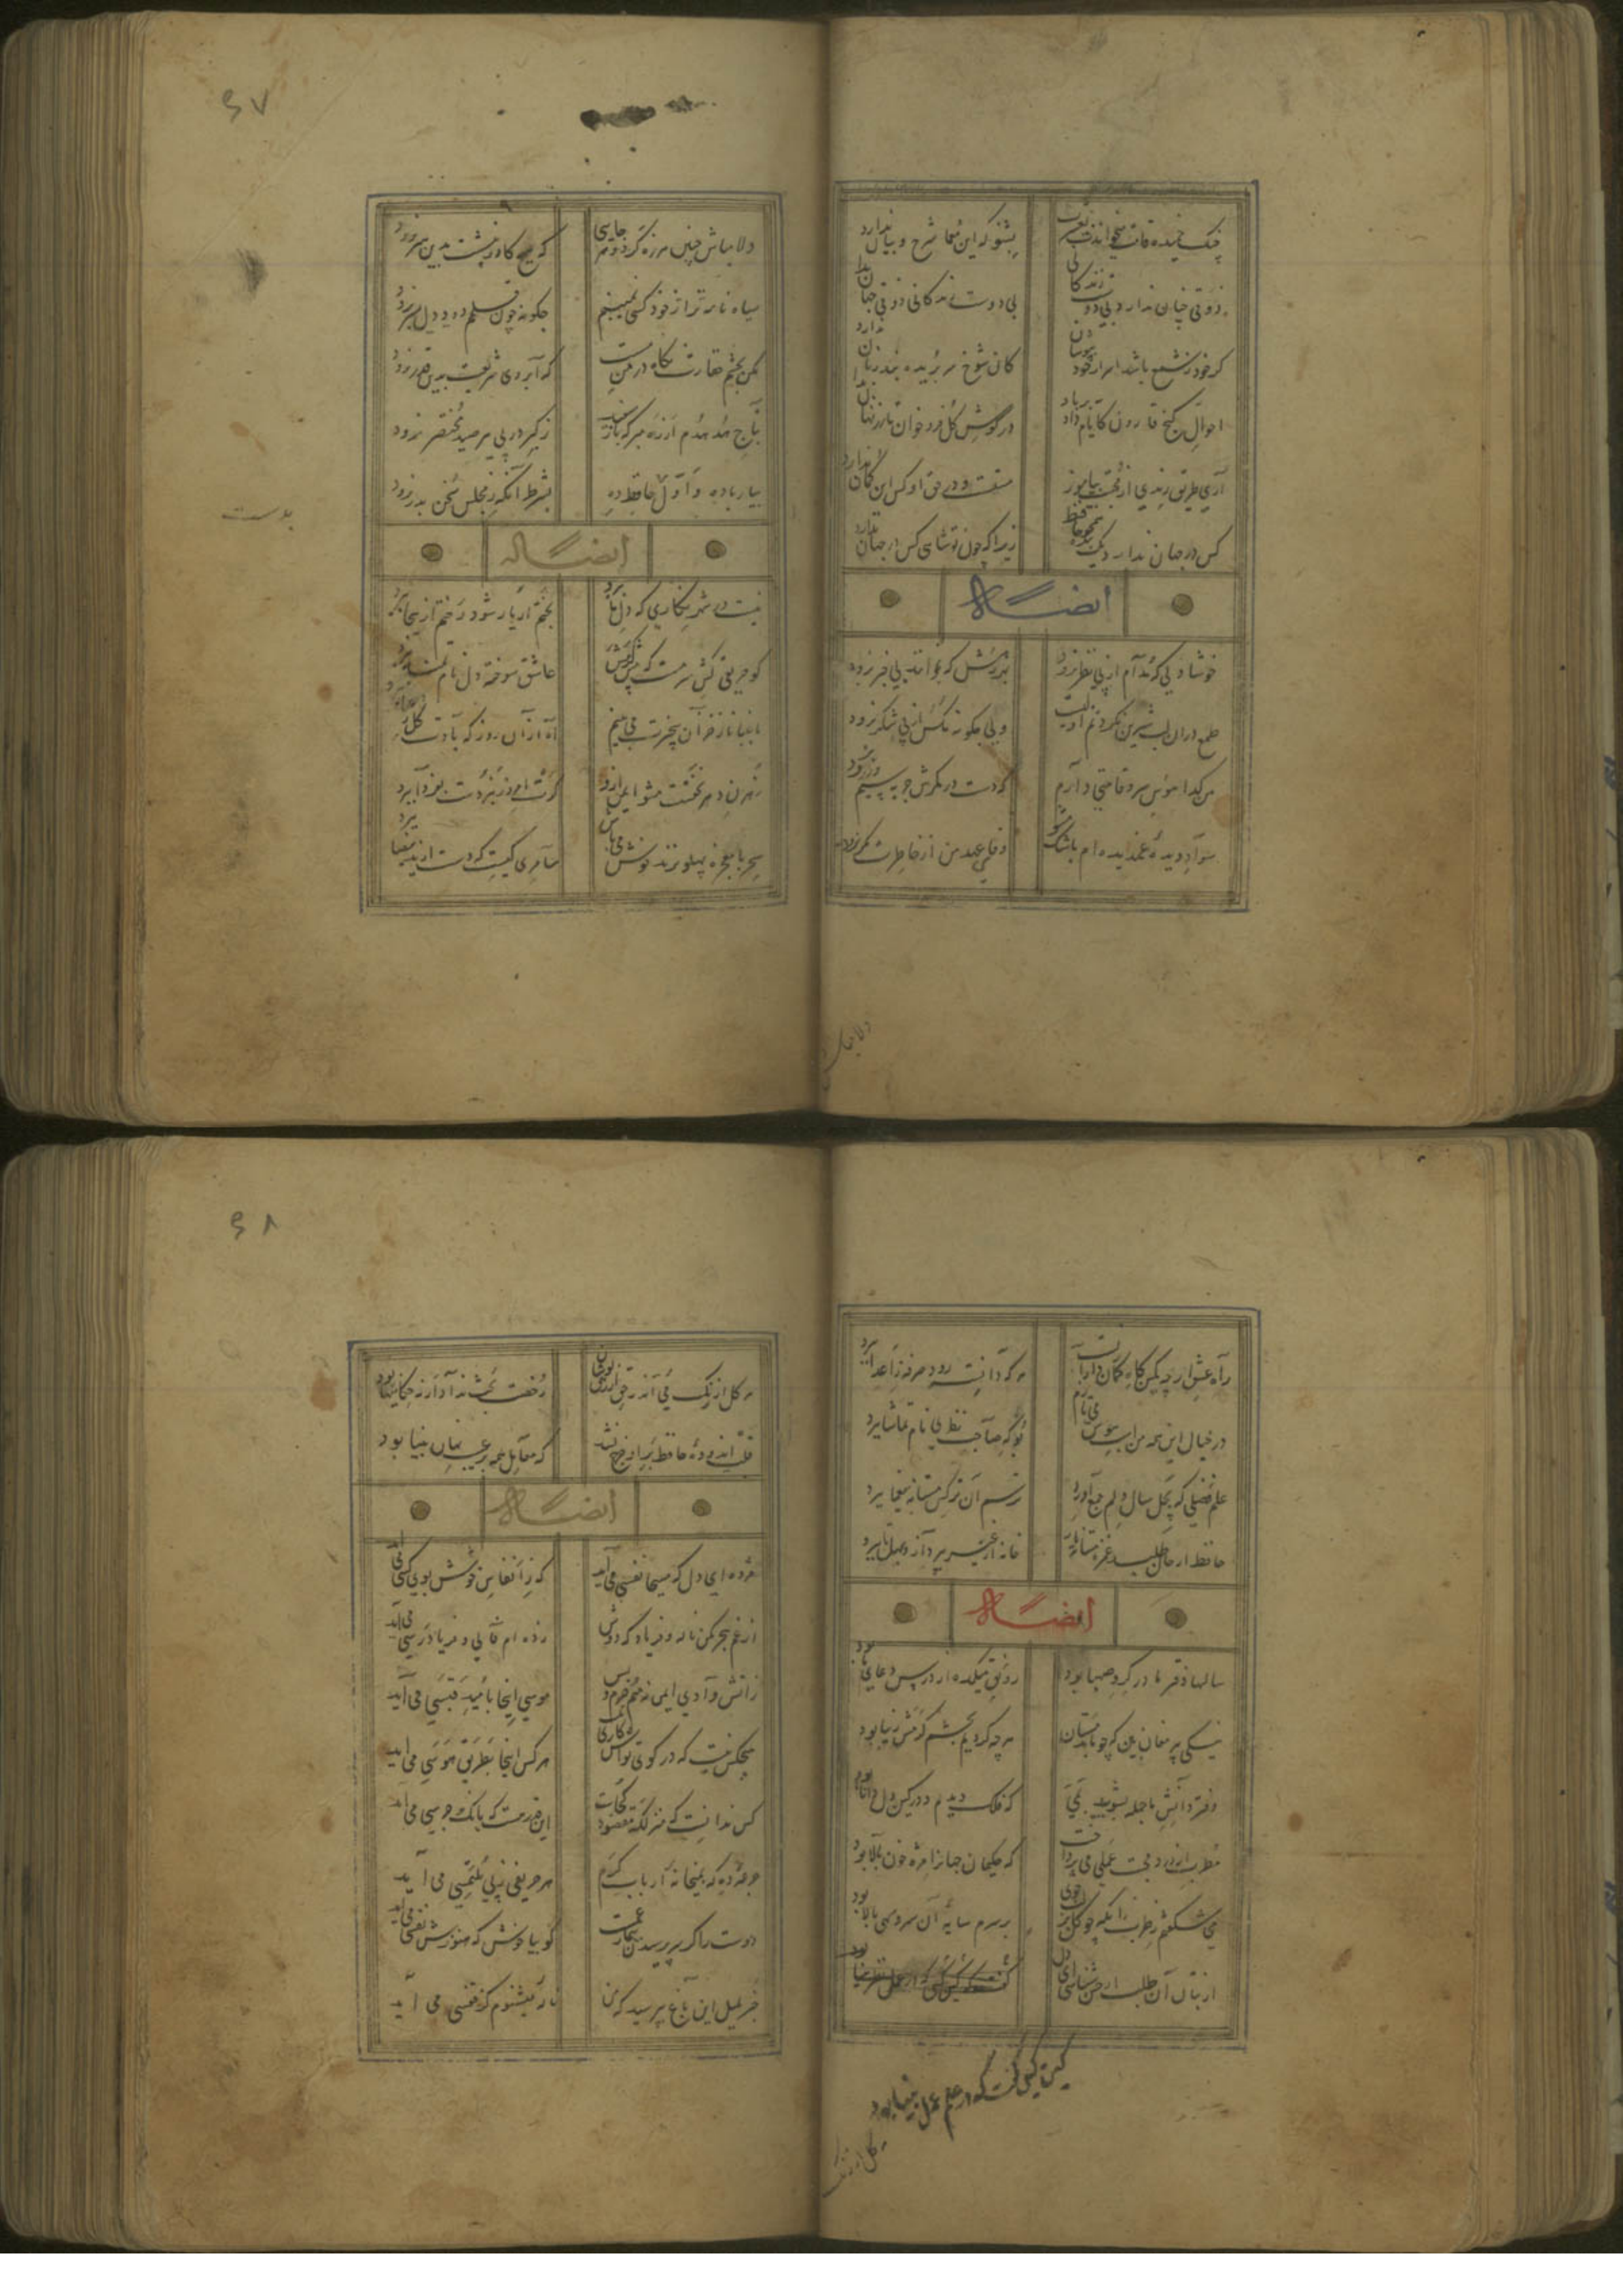 چنگ خمیده قامت میخواندت بعشرت بشنو که این معما شرح و بیان ندارد
ذوقی چنان ندارد بی دوست زندکانی بی دوست زندکانی ذوقی چنان ندارد
کر خود رقیب شمع باشد اسرار ازو بپوشان کان شوخ سر بریده بند زبان ندارد
احوال کنج قارون کایام داد بر باد در کوش کل فرو خوان تا زر نهان ندارد
کس در جهان ندارد یک بنده همچو حافظ زیرا که چون تو شاهی کس در جهان ندارد
ایضاله
خوشا دلی که مدام از پی نظر نرود بهر درش که بخوانند بی خبر نرود
طمع دران لب شیرین نکردنم اولیست ولی چکونه مکس از پی شکر نرود
من کدا هوس سرو قامتی دارم که دست در کمرش جز به سیم و زر نرود
سواد دیده غمدیده ام باشک مشو
دلا مباش
۶۷
دلا مباش چنین هرزه کرد و هرجایی که هیچ کار ز پیشت بدین هنر نرود
سیاه نامه تر از خود کسی نمیبینم چکونه چون قلمم دود دل بسر نرود
مکن بچشم حقارت نکاه در من مست که آبروی شریعت بدین قدر نرود
بتاج هدهدم از ره مبر که باز سفید ز کبر در پی هر صید مختصر نرود
بیار باده و اول بحافظ ده بشرط آنکه ز مجلس سخن بدر نرود
ایضاله
نیست در شهر نکاری که دل ما ببرد بختم ار یار شود رختم ازینجا ببرد
کو حریفی کش سرمست که پیش کرمش عاشق سوخته دل نام تمنا ببرد
باغبانا ز خزان بیخبرت می بینم آه از آن روز که بادت کل رعنا ببرد
رهزن دهر نخفتست مشو ایمن ازو
سحر با معجزه پهلو نزند دل خوش دار سامری کیست که دست از ید بیضا ببرد
راه عشق ار چه کمین کاه کمان دارانست هر که دانسته رود صرفه ز اعدا ببرد
در خیال این همه لعبت بهوس می بازم بو که صاحب نظری نام تماشا ببرد
علم و فضلی که بچل سال دلم جمع آورد ترسم آن نرکس مستانه بیغما ببرد
حافظ ار جان طلبد غمزه مستانه یار خانه از غیر بپرداز و بهل تا ببرد
ایضاله
سالها دفتر ما در کرو صهبا بود رونق میکده از درس و دعای ما بود
نیکی پیر مغان بین که چو ما بدمستان هر چه کردیم بچشم کرمش زیبا بود
دفتر دانش ما جمله بشویید بمی که فلک دیدم و در کین دل دانا بود
مطرب از درد محبت عملی می پرداخت که حکیمان جهانرا مژه خون پالا بود
می شکفتم ز طرب زانکه چو کل بر لب جوی بر سرم سایه آن سرو سهی بالا بود
از بتان آن طلب ار حسن شناسی ای دل
۶۸
قلب اندوده حافظ بر او خرج نشد که معامل بهمه عیب نهان بینا بود
ایضاله
مژده ای دل که مسیحا نفسی می آید که ز انفاس خوشش بوی کسی می آید
از غم هجر مکن ناله و فریاد که دوش زده ام فالی و فریادرسی می آید
ز آتش وادی ایمن نه منم خرم و بس موسی اینجا بامید قبسی می آید
هیچکس نیست که در کوی تواش کاری نیست هر کس اینجا بطریق هوسی می آید
کس ندانست که منزلکه مقصود کجاست این قدر هست که بانک جرسی می آید
جرعه ده که بمیخانه ارباب کرم هر حریفی ز پی ملتمسی می آید
دوست را کر سر پرسیدن بیمار غمست کو بیا خوش که هنوزش نفسی می آید
خبر بلبل این باغ بپرسید که من ناله میشنوم کز قفسی می آید